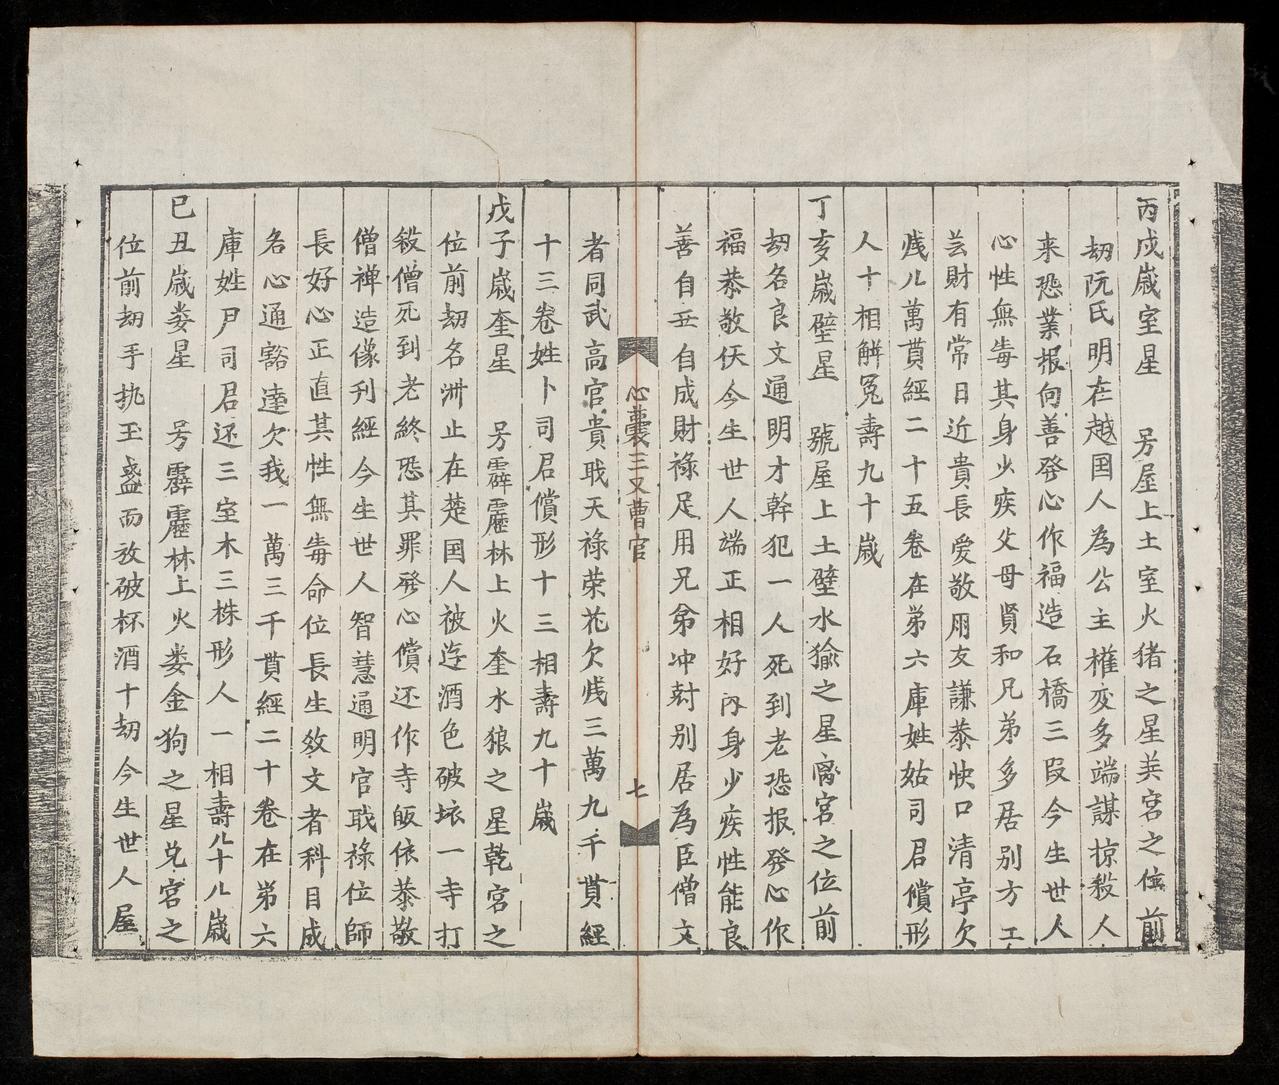 丙戌歲室星　号屋上土室火猪之星美宮之位前
劫阮氏明在越囯人為公主權变多端謀掠殺人
来恐業报向善發心作福造石橋三叚今生世人
心性無毒其身少疾父母賢和兄弟多居别方工
芸財有常日近貴長爱敬朋友謙恭快口清亭欠
㦮八萬貫經二十五卷在苐六庫姓姑司君償形
人十相觧冤壽九十歲
丁亥歲壁星　號屋上土壁水㺄之星宮之位前
劫名良文通明才幹犯一人死到老恐报發心作
福恭敬仸今生世人端正相好内身少疾性能良
善自五自成財祿足用兄弟冲尅别居為臣僧文
心囊三又曹官
七
者同武高官貴戝天祿荣花欠㦮三萬九千貫經
十三卷姓卜司君償形十三相壽九十歲
戊子歲奎星　号霹靂林上火奎水狼之星乾宮之
位前劫名洲止在楚囯人被迄酒色破坏一寺打
殺僧死到老終恐其罪發心償还作寺皈依恭敬
僧禅造像刋經今生世人智慧通明官戝祿位師
長好心正直其性無毒命位長生效文者科目成
名心通豁達欠我一萬三千貫經二十卷在弟六
庫姓尹司君还三室木三株形人一相壽八十八歲
己丑歲娄星　号霹靂林上火娄金狗之星兑宮之
位前劫手执玉盞而放破杯酒十劫今生世人屋